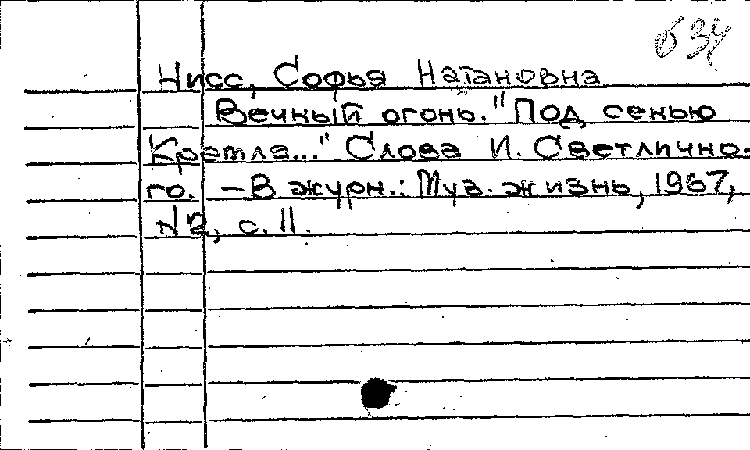 634
Нисс, Софья Натановна
Вечный огонь. "Под сенью
Кремля..." Слова И. Светлично-
го. – В журн.: Муз. жизнь, 1967,
№2, с. 11.